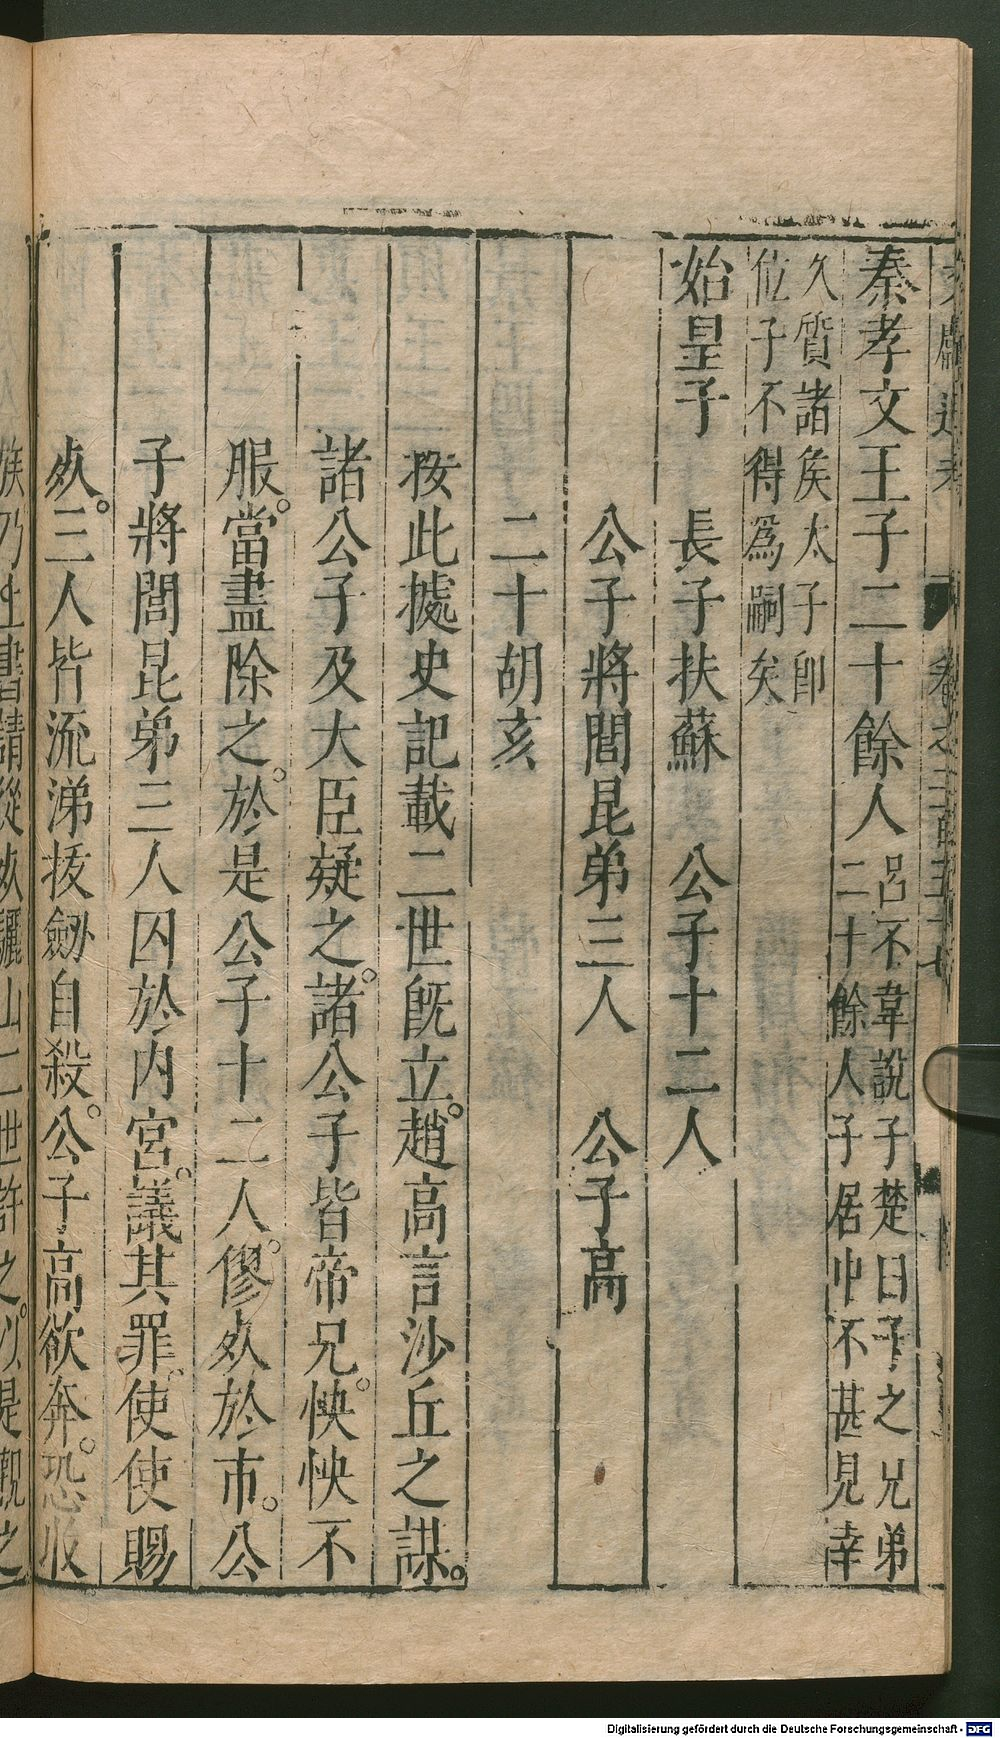 文獻通考 卷之二百五十七
秦孝文王子二十餘人 呂不韋說子楚曰子之兄弟
二十餘人子居中不甚見幸
久質諸侯太子卽
位子不得爲嗣矣
始皇子 長子扶蘇 公子十二人
公子將閭昆弟三人 公子高
二十胡亥
按此據史記載二世旣立。趙高言沙丘之謀。
諸公子及大臣疑之。諸公子皆帝兄。怏怏不
服。當盡除之。於是公子十二人。僇㱙於市。公
子將閭昆弟三人囚於内宮。議其罪。使使賜
㱙。三人皆流涕拔劒自殺。公子高欲奔。恐收
族乃上書請從㱙驪山二世許之。以是觀之
Digitalisierung gefördert durch die Deutsche Forschungsgemeinschaft - DFG